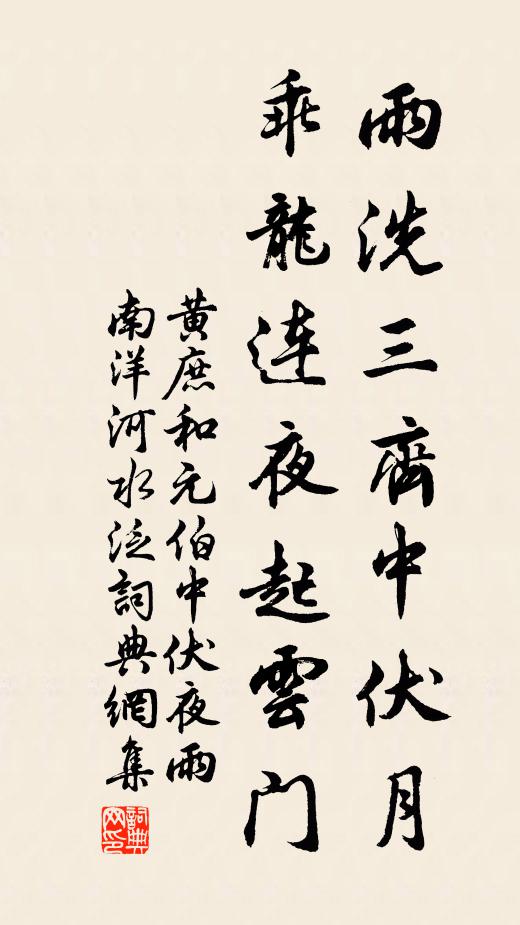 雨洗三齊中伏月
乘龍連夜起雲門
黃庶和元伯中伏夜雨
南洋河水泛詞典網集
詞典
网印